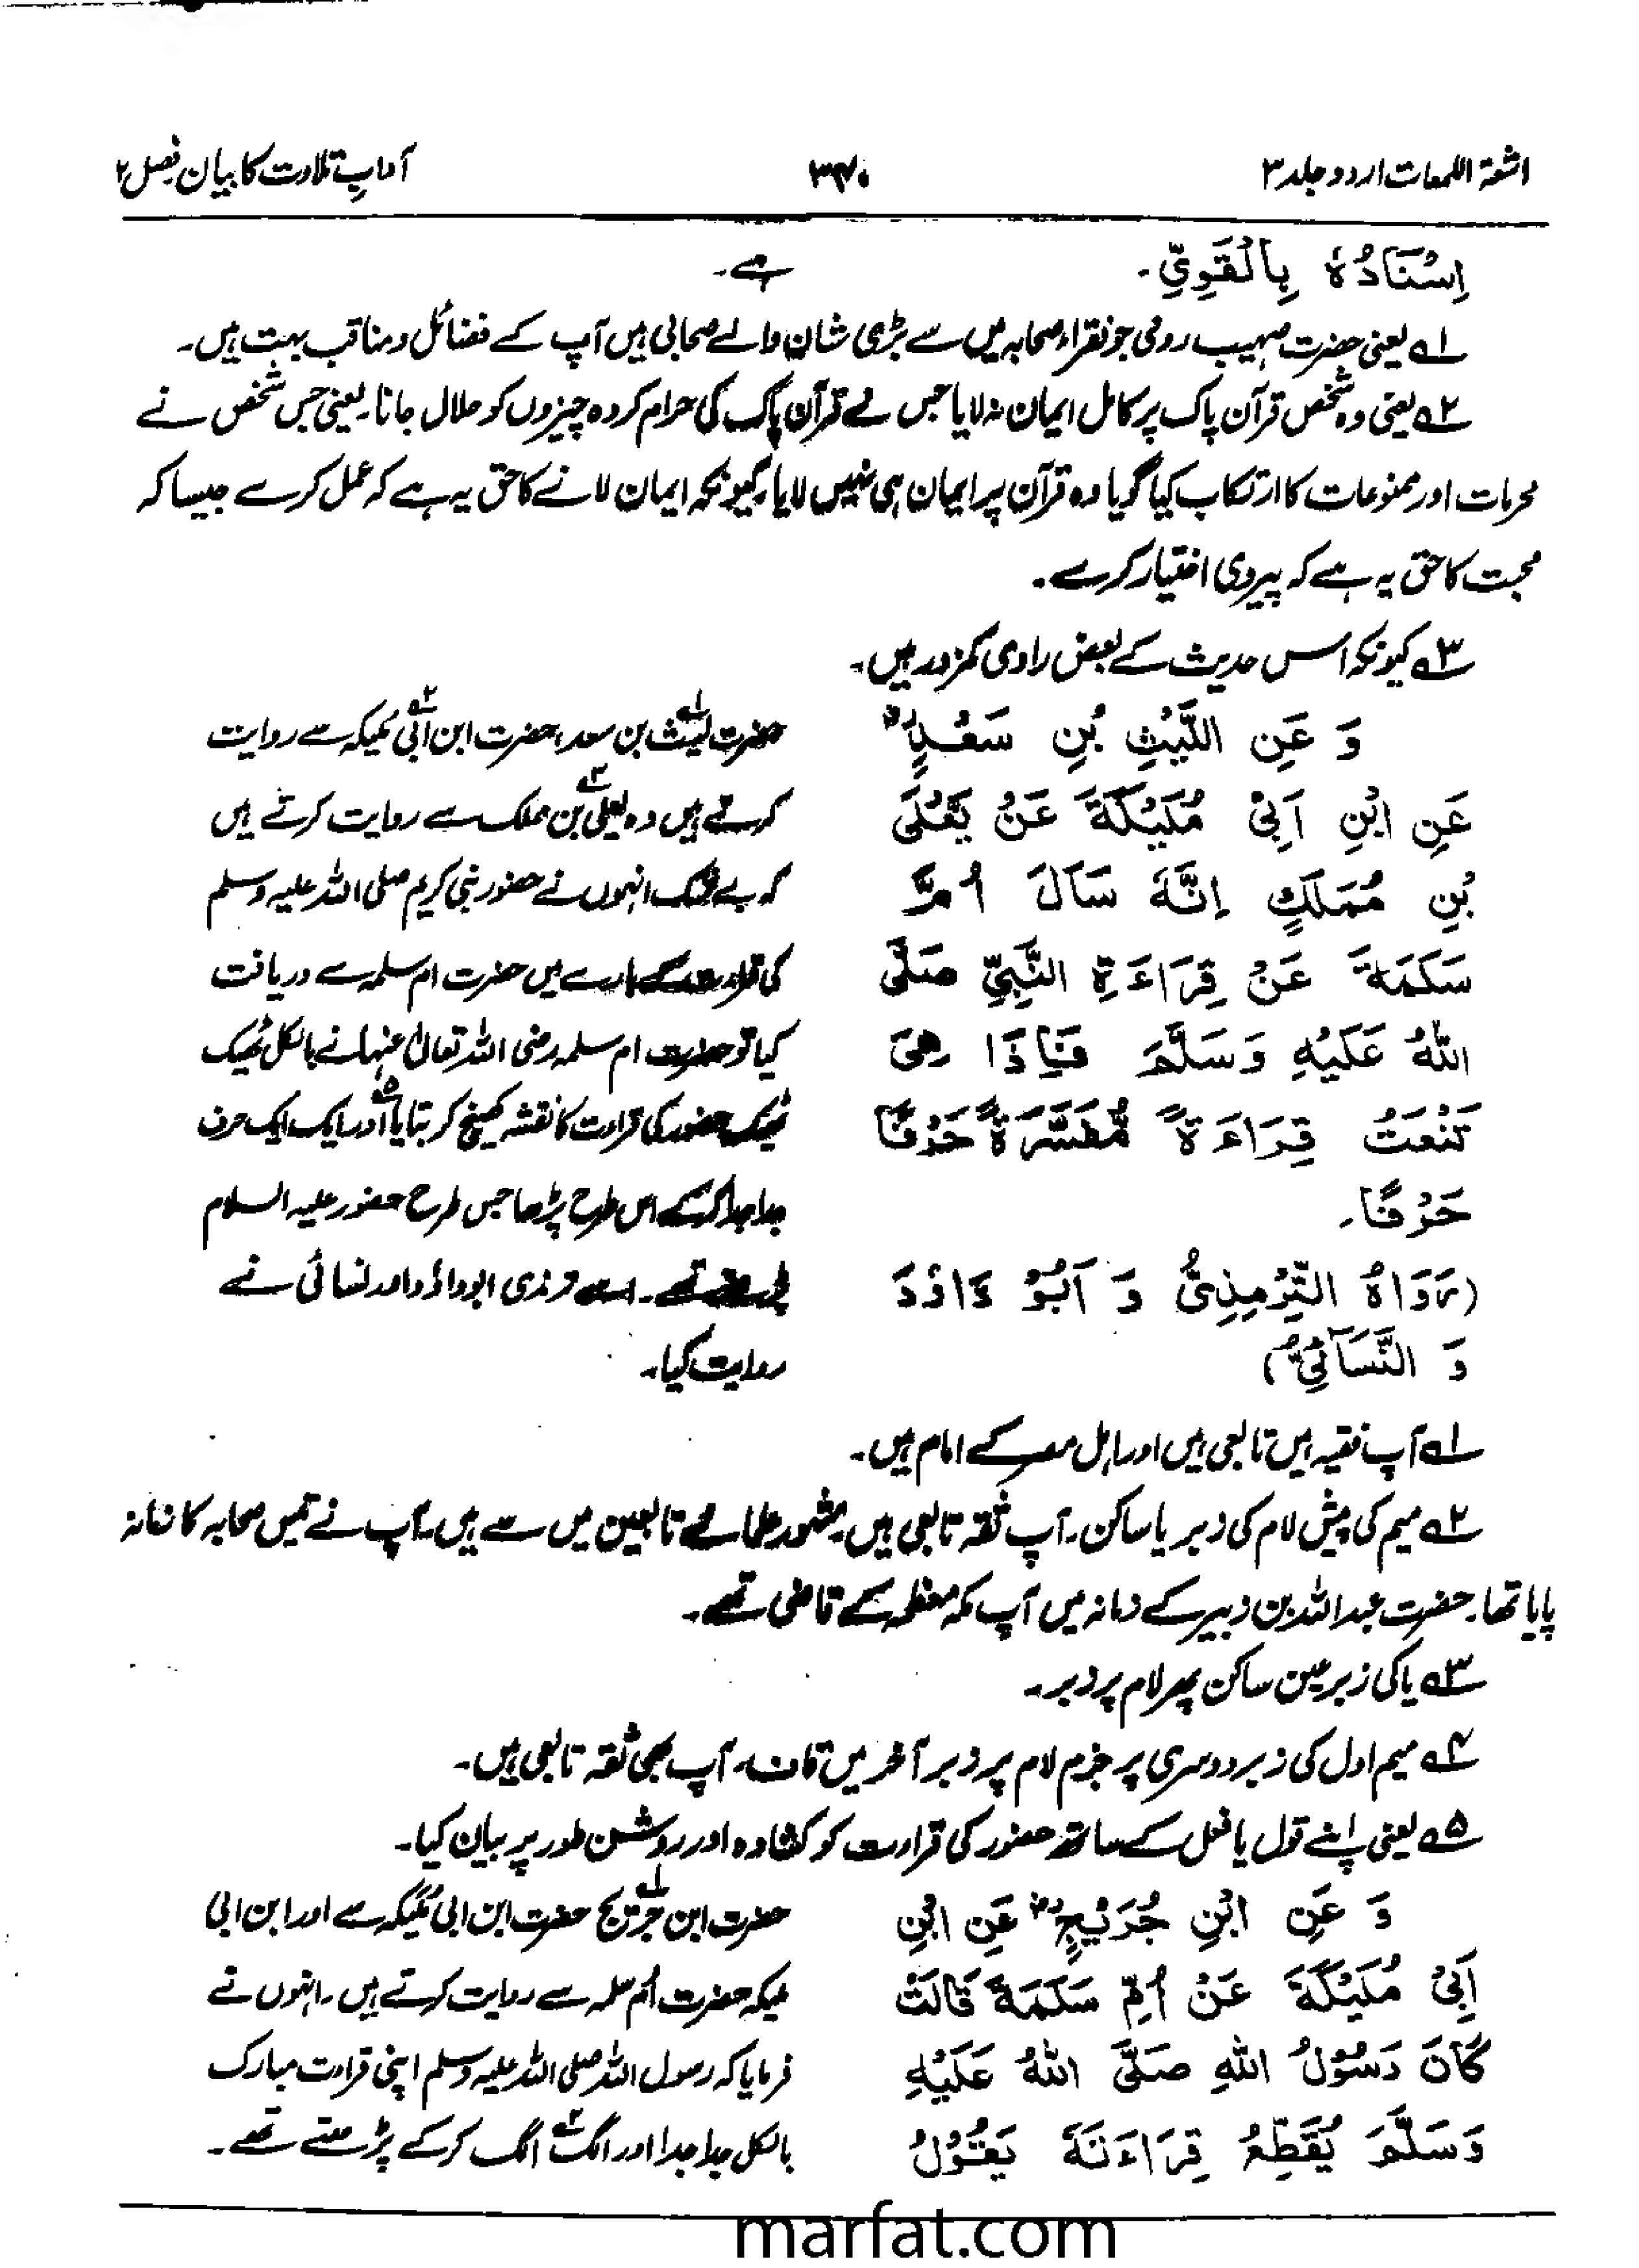 اشعۃ اللمعات اردو جلد ۳ ۳۷۰ آدابِ تلاوت کا بیان فصل ۲
اِسْنَادُهٗ بِالْقَوِيِّ۔ ہے۔
۱ے یعنی حضرت صہیب رومی جو فقراء صحابہ میں سے بڑی شان والے صحابی ہیں آپ کے فضائل و مناقب بہت ہیں۔
۲ے یعنی وہ شخص قرآن پاک پر کامل ایمان نہ لایا جس نے قرآن پاک کی حرام کردہ چیزوں کو حلال جانا۔ یعنی جس شخص نے
محرمات اور ممنوعات کا ارتکاب کیا گویا وہ قرآن پر ایمان ہی نہیں لایا، کیونکہ ایمان لانے کا حق یہ ہے کہ عمل کرے جیسا کہ
محبت کا حق یہ ہے کہ پیروی اختیار کرے۔
۳ے کیونکہ اس حدیث کے بعض راوی کمزور ہیں۔
وَ عَنِ اللَّيْثِ بْنِ سَعْدٍ
عَنِ ابْنِ اَبِیْ مُلَيْكَةَ عَنْ يَعْلَى
بْنِ مُمَلَكٍ اِنَّهٗ سَاَلَ اُمَّ
سَلَمَةَ عَنْ قِرَاءَةِ النَّبِيِّ صَلَّى
اللهُ عَلَيْهِ وَسَلَّمَ فَاِذَا هِیَ
تَنْعَتُ قِرَاءَةً مُّفَسَّرَةً حَرْفًا
حَرْفًا۔
(رَوَاهُ التِّرْمِذِيُّ وَ اَبُوْ دَاوٗدَ
وَ النَّسَآئِيُّ)
حضرت لیث۱ے بن سعد، حضرت ابن ابی۲ے ملیکہ سے روایت
کرتے ہیں وہ یعلی۳ے بن مملک سے روایت کرتے ہیں
کہ بے شک انہوں نے حضور نبی کریم صلی اللہ علیہ وسلم
کی قراءت کے بارے میں حضرت ام سلمہ سے دریافت
کیا تو حضرت ام سلمہ رضی اللہ تعالیٰ عنہا نے بالکل ٹھیک
ٹھیک حضور کی قراءت کا نقشہ کھینچ کر بتایا۵ے اور ایک ایک حرف
جدا جدا کر کے اس طرح پڑھا جس طرح حضور علیہ السلام
پڑھتے تھے۔ اسے ترمذی ابوداؤد اور نسائی نے
روایت کیا۔
۱ے آپ فقیہ ہیں تابعی ہیں اور اہل مصر کے امام ہیں۔
۲ے میم کی پیش لام کی زبر یا ساکن۔ آپ ثقہ تابعی ہیں۔ مشہور علمائے تابعین میں سے ہیں۔ آپ نے تیس صحابہ کا زمانہ
پایا تھا۔ حضرت عبداللہ بن زبیر کے زمانہ میں آپ مکہ معظمہ کے قاضی تھے۔
۳ے یا کی زبر عین ساکن پھر لام پر زبر۔
۴ے میم اول کی زبر دوسری پر جزم لام پر زبر آخر میں کاف، آپ بھی ثقہ تابعی ہیں۔
۵ے یعنی اپنے قول یا فعل کے ساتھ حضور کی قراءت کو کشادہ اور روشن طور پر بیان کیا۔
وَ عَنِ ابْنِ جُرَيْجٍ عَنِ ابْنِ
اَبِیْ مُلَيْكَةَ عَنْ اُمِّ سَلَمَةَ قَالَتْ
كَانَ رَسُوْلُ اللهِ صَلَّى اللهُ عَلَيْهِ
وَسَلَّمَ يُقَطِّعُ قِرَاءَتَهٗ يَقُوْلُ
حضرت ابن جریج۱ے حضرت ابن ابی ملیکہ سے اور ابن ابی
ملیکہ حضرت ام سلمہ سے روایت کرتے ہیں۔ انہوں نے
فرمایا کہ رسول اللہ صلی اللہ علیہ وسلم اپنی قراءت مبارک
بالکل جدا جدا اور الگ۲ے الگ کر کے پڑھتے تھے۔
marfat.com